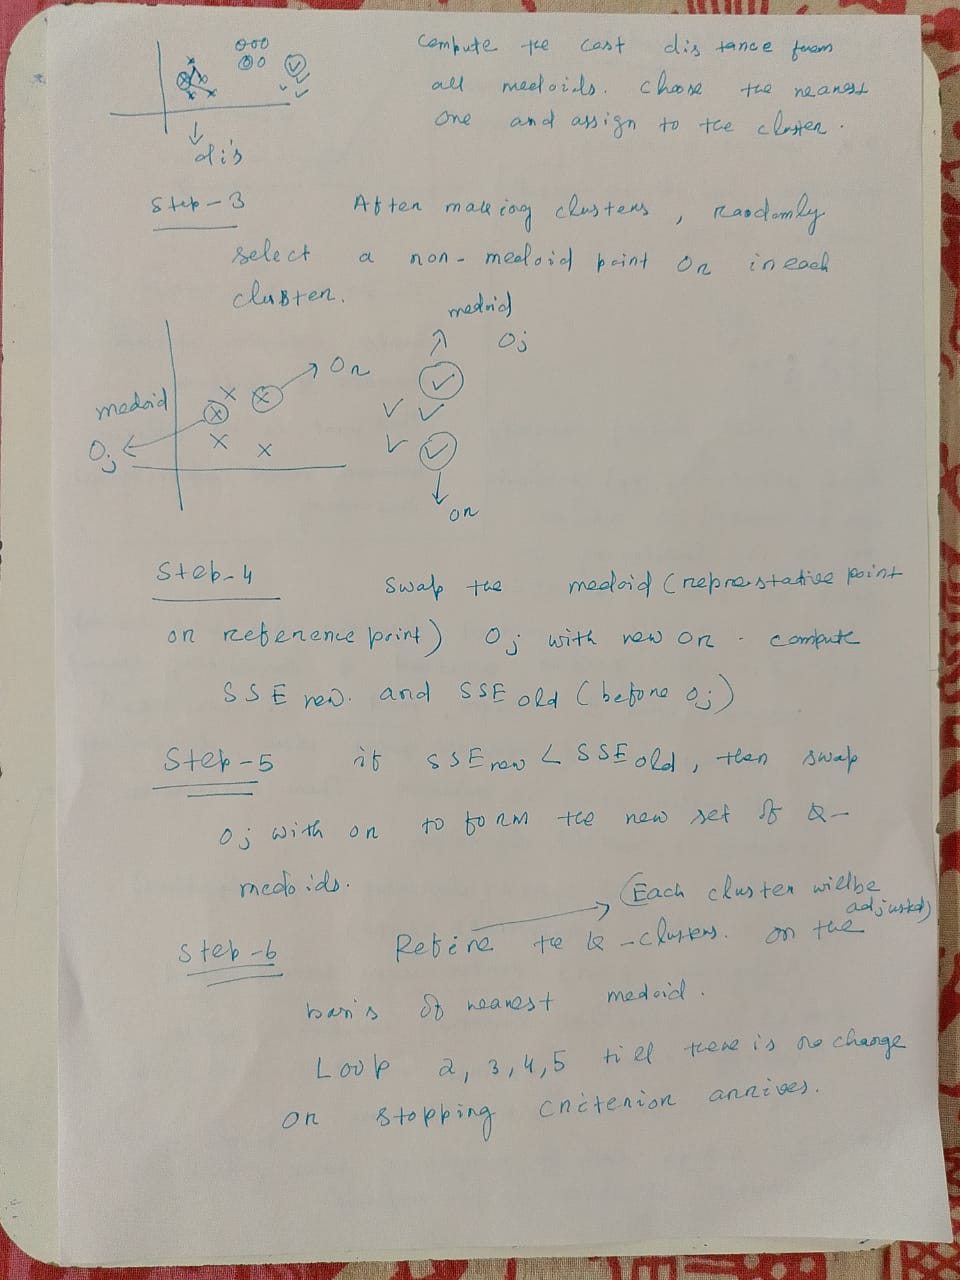 Compute the cost distance from
all medoids. Choose the nearest
one and assign to the cluster.
dis
Step-3 After making clusters, Randomly
select a non-medoid point Or in each
cluster.
medoid
Oj
Or
medoid
Oj
or
Step-4 Swap the medoid (represtative point
or reference point) Oj with new Or. compute
SSE new. and SSE old (before Oj)
Step-5 if SSE new < SSE old, then swap
Oj with or to form the new set of k-
medoids.
(Each cluster will be
adjusted)
Step-6 Refine the k-clusters. on the
basis of nearest medoid.
Loop 2, 3, 4, 5 till there is no change
or stopping criterion arrives.